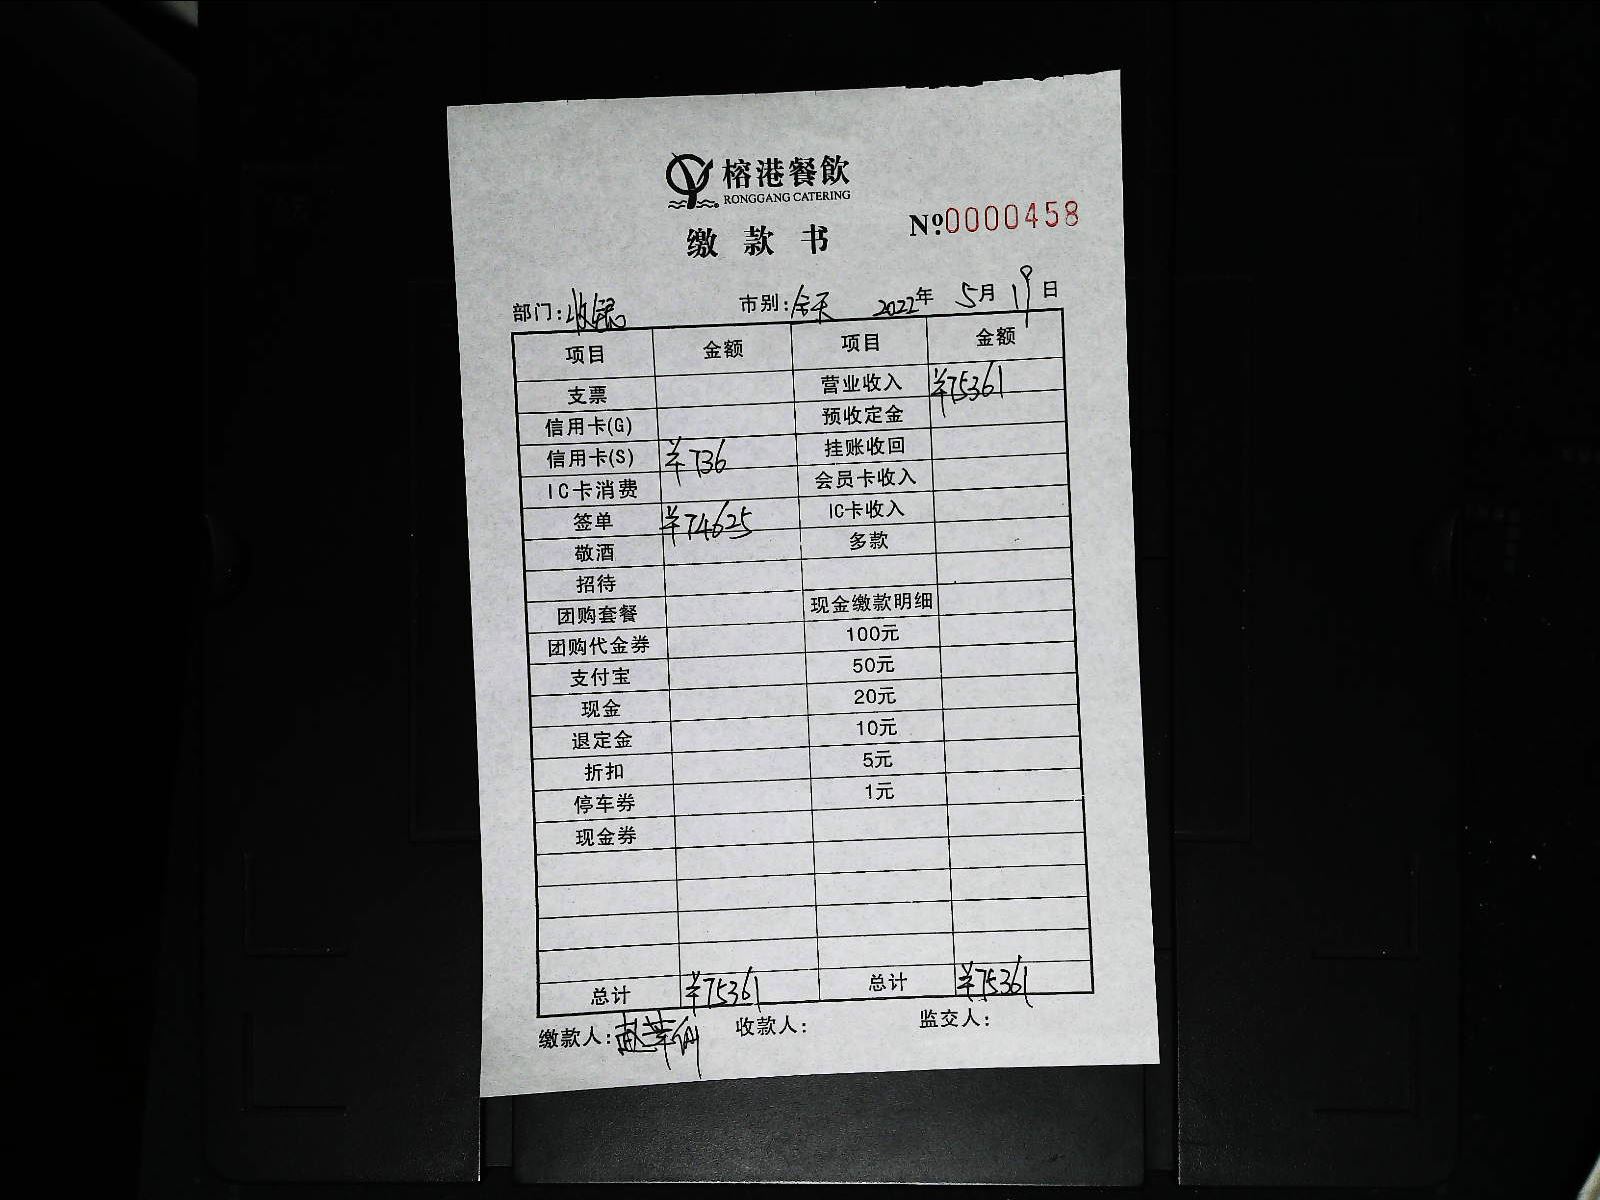 榕港餐飲
RONGGANG CATERING
缴款书 Nº:0000458
部门:收银 市别:全天 2022年 5月 19日
项目 金额 项目 金额
支票 营业收入 ¥75361
信用卡(G) 预收定金
信用卡(S) ¥736 挂账收回
IC卡消费 会员卡收入
签单 ¥74625 IC卡收入
敬酒 多款
招待
团购套餐 现金缴款明细
团购代金券 100元
支付宝 50元
现金 20元
退定金 10元
折扣 5元
停车券 1元
现金券
总计 ¥75361 总计 ¥75361
缴款人: 收款人: 监交人: